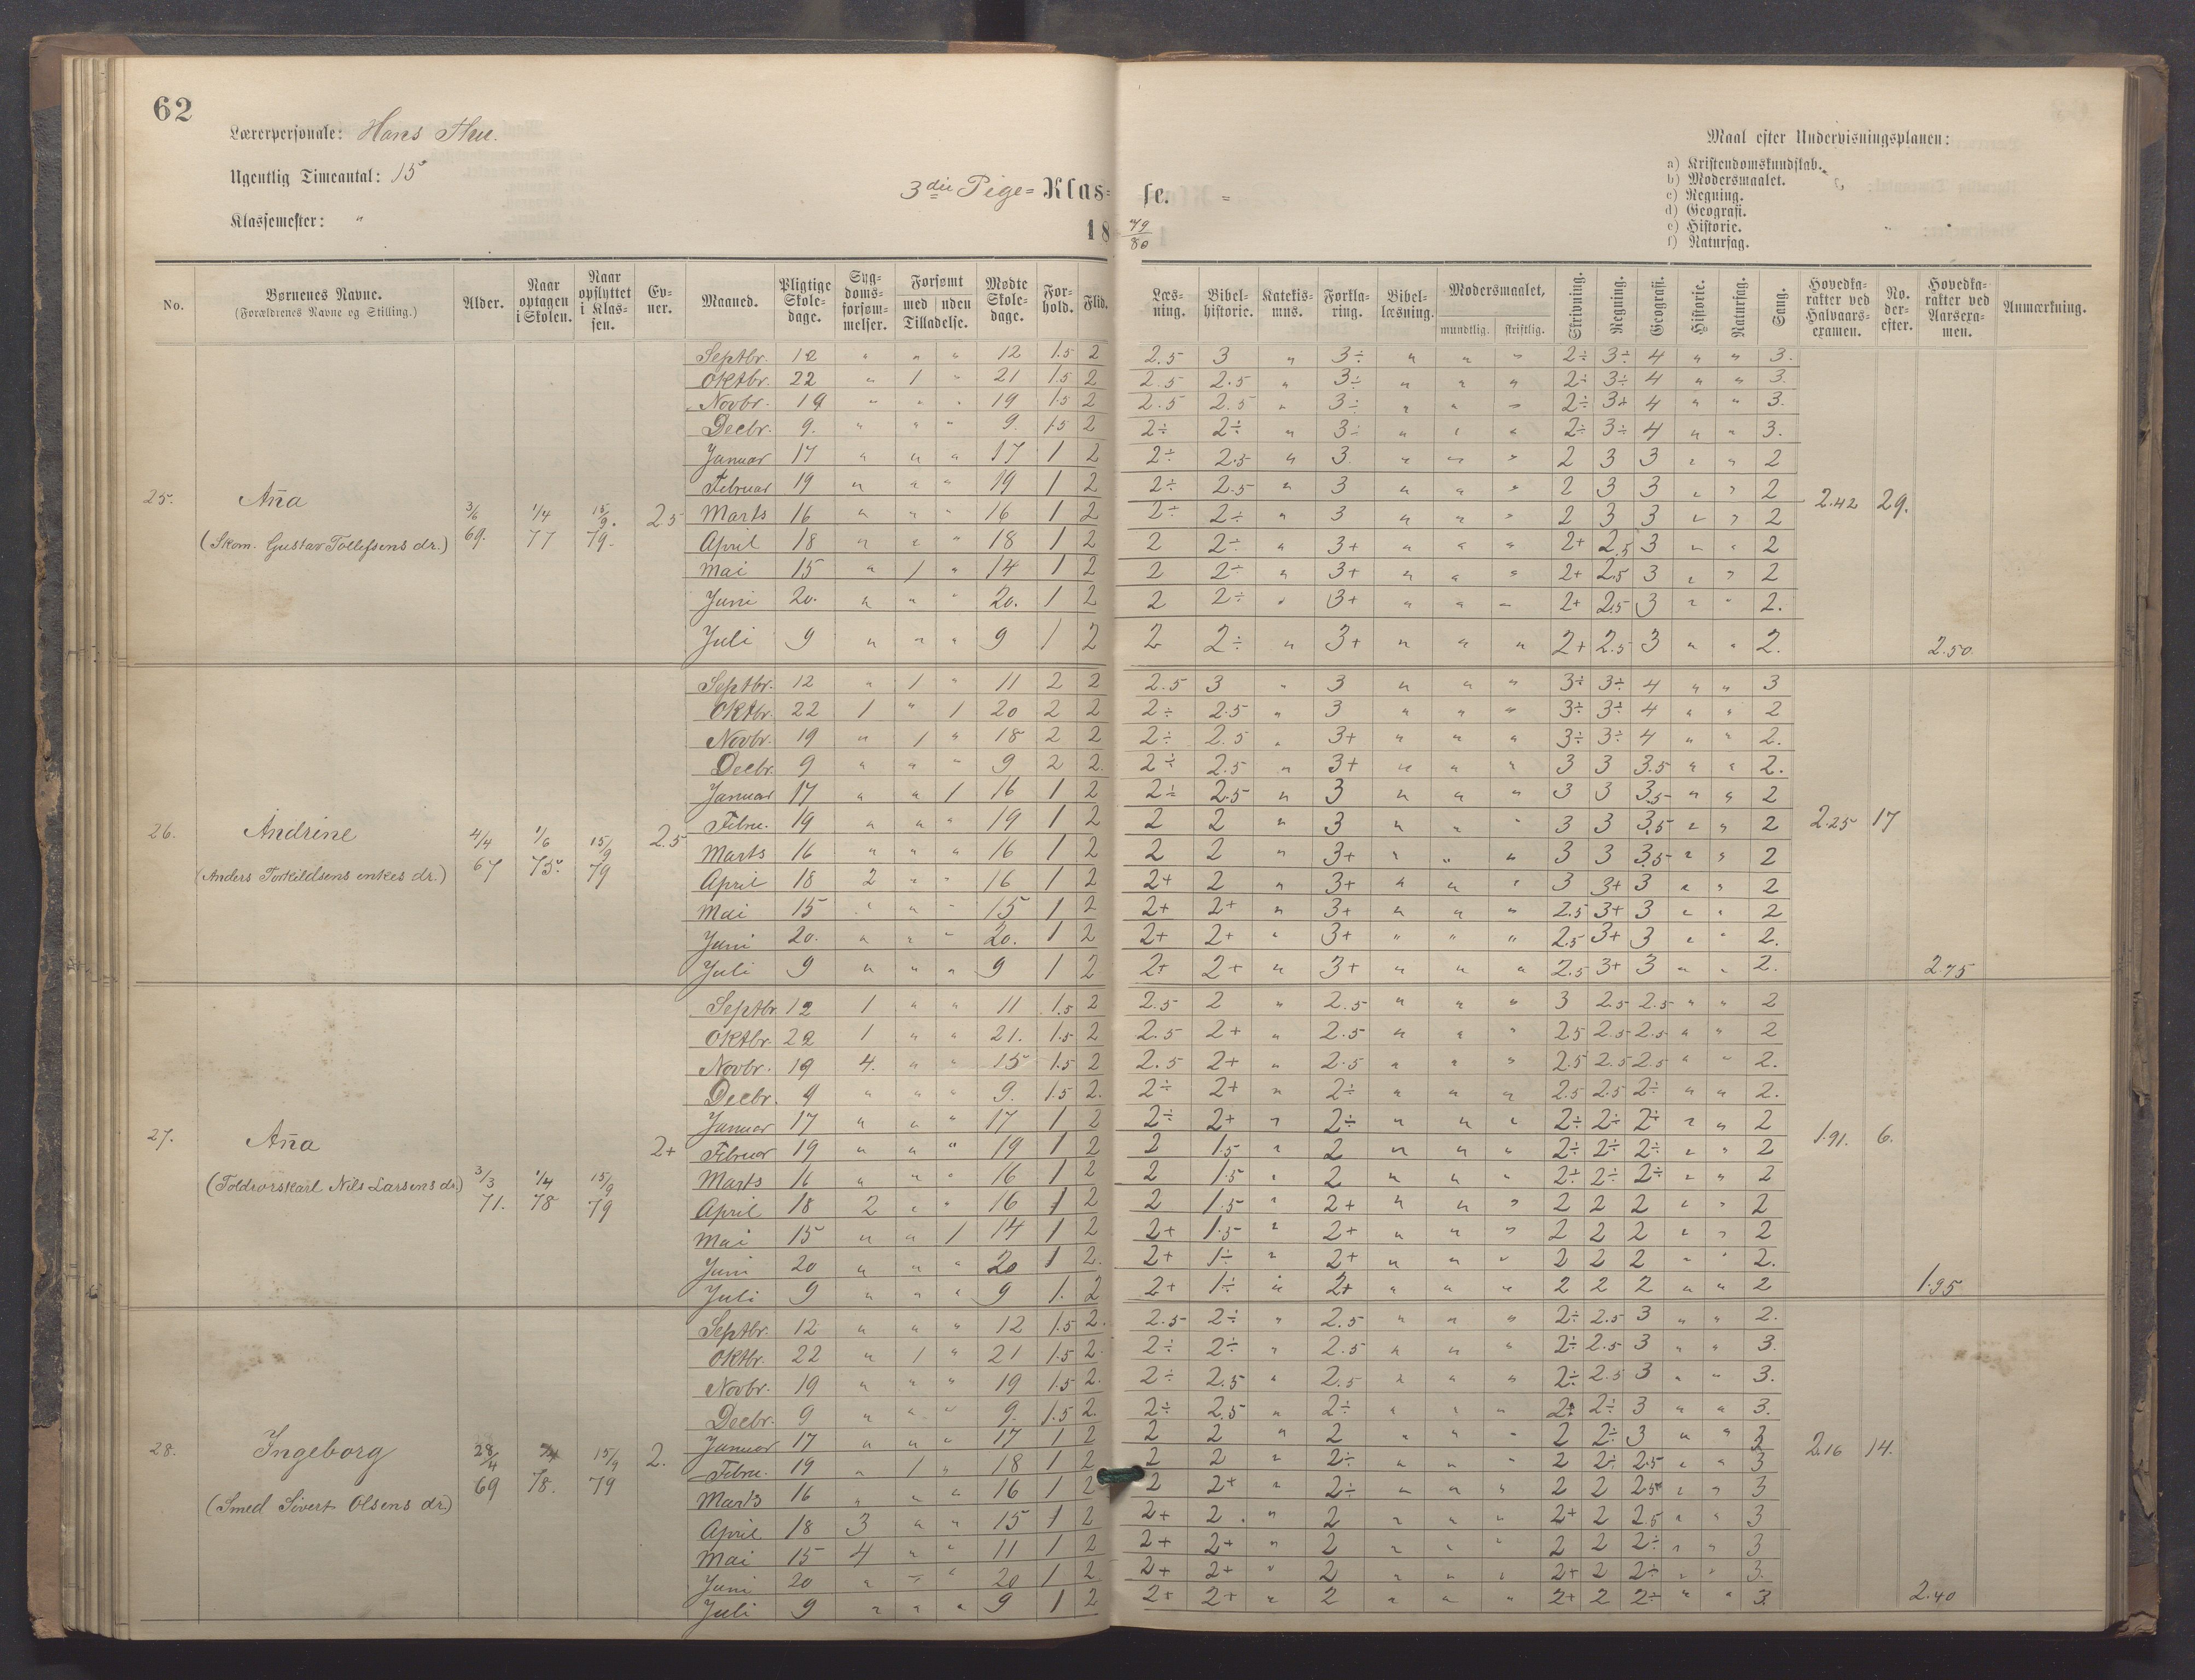 62
Lærerpersonale: Hans Thu.
Ugentlig Timeantal: 15
Klassemester: "
3die Pige= Klas=
se. =
18 79/80
Maal efter Undervisningsplanen:
a) Kristendomskundskab.
b) Modersmaalet.
c) Regning.
d) Geografi.
e) Historie.
f) Naturfag.
No. | Børnenes Navne. (Forældrenes Navne og Stilling.) | Alder. | Naar optagen i Skolen. | Naar opflyttet i Klassen. | Evner. | Maaned. | Pligtige Skoledage. | Sygdomsforsømmelser. | Forsømt med / uden Tilladelse. | Mødte Skoledage. | Forhold. | Flid. | Læsning. | Bibelhistorie. | Katekismus. | Forklaring. | Bibellæsning. | Modersmaalet, mundtlig. | skriftlig. | Skrivning. | Regning. | Geografi. | Historie. | Naturfag. | Sang. | Hovedkarakter ved Halvaarsexamen. | No. derefter. | Hovedkarakter ved Aarsexamen. | Anmærkning.
25. Ana (Skom. Gustav Tollefsens dr.) 3/6 69. 1/4 77 15/9. 79. 2.5 2.42 29. 2.50.
Septbr. 12 " " " 12 1.5 2 2.5 3 " 3÷ " " " 2÷ 3÷ 4 " " 3.
Oktbr. 22 " 1 " 21 1.5 2 2.5 2.5 " 3÷ " " " 2÷ 3÷ 4 " " 3.
Novbr. 19 " " " 19 1.5 2 2.5 2.5 " 3÷ " " " 2÷ 3+ 4 " " 3.
Decbr. 9. " " " 9. 1.5 2 2÷ 2÷ " 3÷ " " " 2÷ 3÷ 4 " " 3.
Januar 17 " " " 17 1 2 2÷ 2.5 " 3 " " " 2 3 3 " " 2
Februar 19 " " " 19 1 2 2÷ 2.5 " 3 " " " 2 3 3 " " 2
Marts 16 " " " 16 1 2 2÷ 2÷ " 3 " " " 2 3 3 " " 2
April 18 " " " 18 1 2 2 2÷ " 3+ " " " 2+ 2.5 3 " " 2
Mai 15 " 1 " 14 1 2 2 2÷ " 3+ " " " 2+ 2.5 3 " " 2
Juni 20. " " " 20. 1 2 2 2÷ " 3+ " " " 2+ 2.5 3 " " 2.
Juli 9 " " " 9 1 2 2 2÷ " 3+ " " " 2+ 2.5 3 " " 2.
26. Andrine (Anders Torkildsens enkes dr.) 4/4 67 1/6 75. 15/9 79 2.5 2.25 17 2.75
Septbr. 12 " 1 " 11 2 2 2.5 3 " 3 " " " 3÷ 3÷ 4 " " 3
Oktbr. 22 1 " 1 20 2 2 2÷ 2.5 " 3 " " " 3÷ 3÷ 4 " " 2
Novbr. 19 " 1 " 18 2 2 2÷ 2.5 " 3+ " " " 3÷ 3÷ 4 " " 2.
Decbr. 9 " " " 9 2 2. 2÷ 2.5 " 3+ " " " 3 3 3.5 " " 2.
Januar 17 " " 1 16 1 2 2÷ 2.5 " 3 " " " 3 3 3.5 " " 2
Febru. 19 " " " 19 1 2 2 2 " 3 " " " 3 3 3.5 " " 2
Marts 16 " " " 16 1 2 2 2 " 3+ " " " 3 3 3.5 " " 2
April 18 2 " " 16 1 2 2+ 2 " 3+ " " " 3 3+ 3 " " 2
Mai 15 " " " 15 1 2 2+ 2+ " 3+ " " " 2.5 3+ 3 " " 2
Juni 20. " " " 20. 1 2 2+ 2+ " 3+ " " " 2.5 3+ 3 " " 2.
Juli 9 " " " 9 1 2 2+ 2+ " 3+ " " " 2.5 3+ 3 " " 2.
27. Ana (Toldvorskarl Nils Larsens dr.) 3/3 71. 1/4 78 15/9 79 2+ 1.91. 6. 1.95
Septbr. 12 1 " " 11 1.5 2 2.5 2 " 2.5 " " " 3 2.5 2.5 " " 2
Oktbr. 22 1 " " 21. 1.5 2 2.5 2+ " 2.5 " " " 2.5 2.5 2.5 " " 2
Novbr. 19 4. " " 15 1.5 2 2.5 2+ " 2.5 " " " 2.5 2.5 2.5 " " 2.
Decbr. 9 " " " 9. 1.5 2. 2÷ 2+ " 2÷ " " " 2.5 2.5 2÷ " " 2.
Januar 17 " " " 17 1 2 2÷ 2+ " 2÷ " " " 2÷ 2÷ 2÷ " " 2
Februar 19 " " " 19 1 2 2 1.5 " 2 " " " 2÷ 2÷ 2÷ " " 2
Marts 16 " " " 16 1 2 2 1.5 " 2 " " " 2÷ 2÷ 2÷ " " 2
April 18 2 " " 16 1 2 2 1.5 " 2+ " " " 2 2 2 " " 2
Mai 15 " " 1 14 1 2 2+ 1.5 " 2+ " " " 2 2 2 " " 2
Juni 20 " " " 20 1 2. 2+ 1÷ " 2+ " " " 2 2 2 " " 2.
Juli 9 " " " 9 1. 2 2+ 1÷ " 2+ " " " 2 2 2 " " 2
28. Ingeborg (Smed Sivert Olsens dr.) 28/4 69 78. 15/9 79 2. 2.16 14. 2.40
Septbr. 12 " " " 12 1.5 2. 2.5 2÷ " 2.5 " " " 2÷ 2.5 3 " " 2.
Oktbr. 22 " 1 " 21 1.5 2. 2÷ 2÷ " 2.5 " " " 2÷ 2.5 3 " " 3.
Novbr. 19 " " " 19 1.5 2. 2÷ 2.5 " 2.5 " " " 2÷ 2.5 3 " " 3.
Decbr. 9 " " " 9. 1.5 2. 2÷ 2.5 " 2÷ " " " 2÷ 2÷ 3 " " 3.
Januar 17 " " " 17 1 2 2 2 " 2 " " " 2 2÷ 3 " " 3
Febru. 19 " 1 " 18 1 2 2 2 " 2÷ " " " 2 2÷ 2.5 " " 3
Marts 16 " " " 16 1 2 2 2+ " 2÷ " " " 2 2 2.5 " " 3
April 18 3 " " 15 1 2 2+ 2. " 2 " " " 2+ 2 2.5 " " 3
Mai 15 4 " " 11 1 2 2+ 2+ " 2 " " " 2 2 2÷ " " 3
Juni 20 " " " 20 1 2 2+ 2+ " 2 " " " 2+ 2 2÷ " " 3.
Juli 9 " " " 9 1 2 2+ 2+ " 2 " " " 2+ 2 2÷ " " 3.